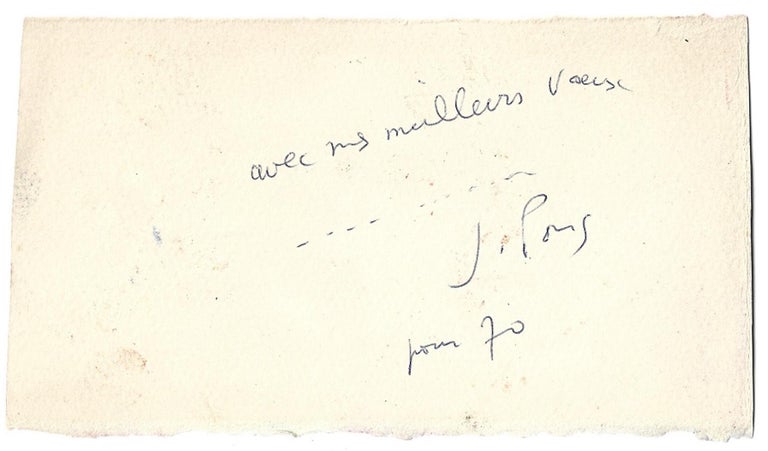 avec mes meilleurs vœux
J. Pons
pour 70